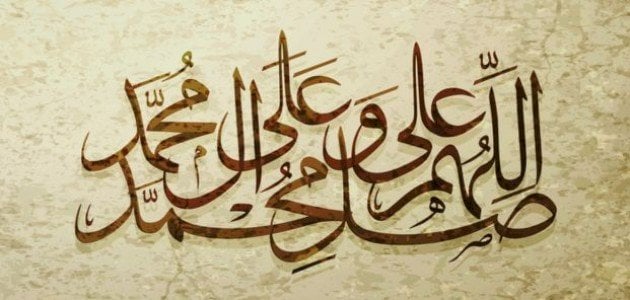 اللَّهُمَّ صل على مُحمَّد وَعَلَى ال مُحمَّد